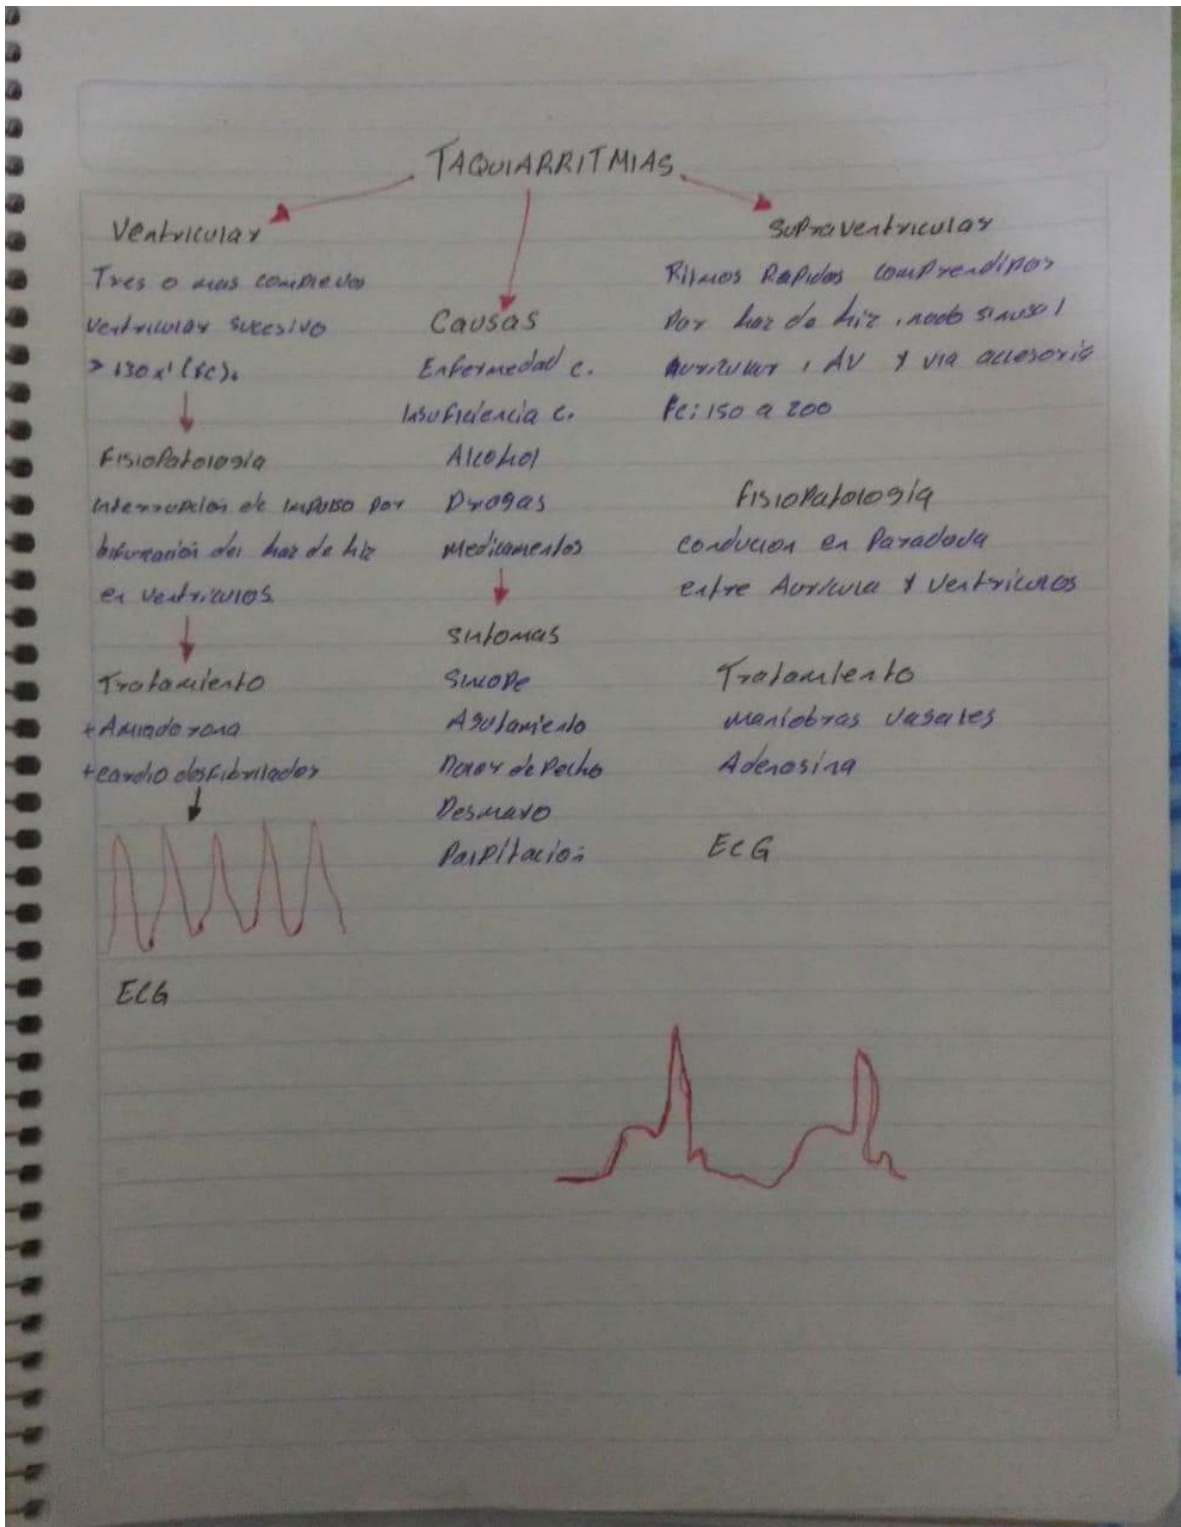 TAQUIARRITMIAS
Ventricular
Tres o mas complejos
Ventricular sucesivo
> 130 x' (fc).
Fisiopatología
Interrupción de impulso por
bifurcación del haz de hiz
en ventriculos.
Tratamiento
+ Amiodarona
+ cardio desfibrilador
ECG
Causas
Enfermedad c.
Insuficiencia c.
Alcohol
Drogas
Medicamentos
Sintomas
Sincope
Agotamiento
Dolor de Pecho
Desmayo
Palpitacion
Supraventricular
Ritmos Rapidos comprendipos
Por haz de hiz, nodo sinusal
Auricular, AV y via accesoria
Fc: 150 a 200
Fisiopatología
conducion en Paradada
entre Auricula y Ventriculos
Tratamiento
maniobras vasales
Adenosina
ECG